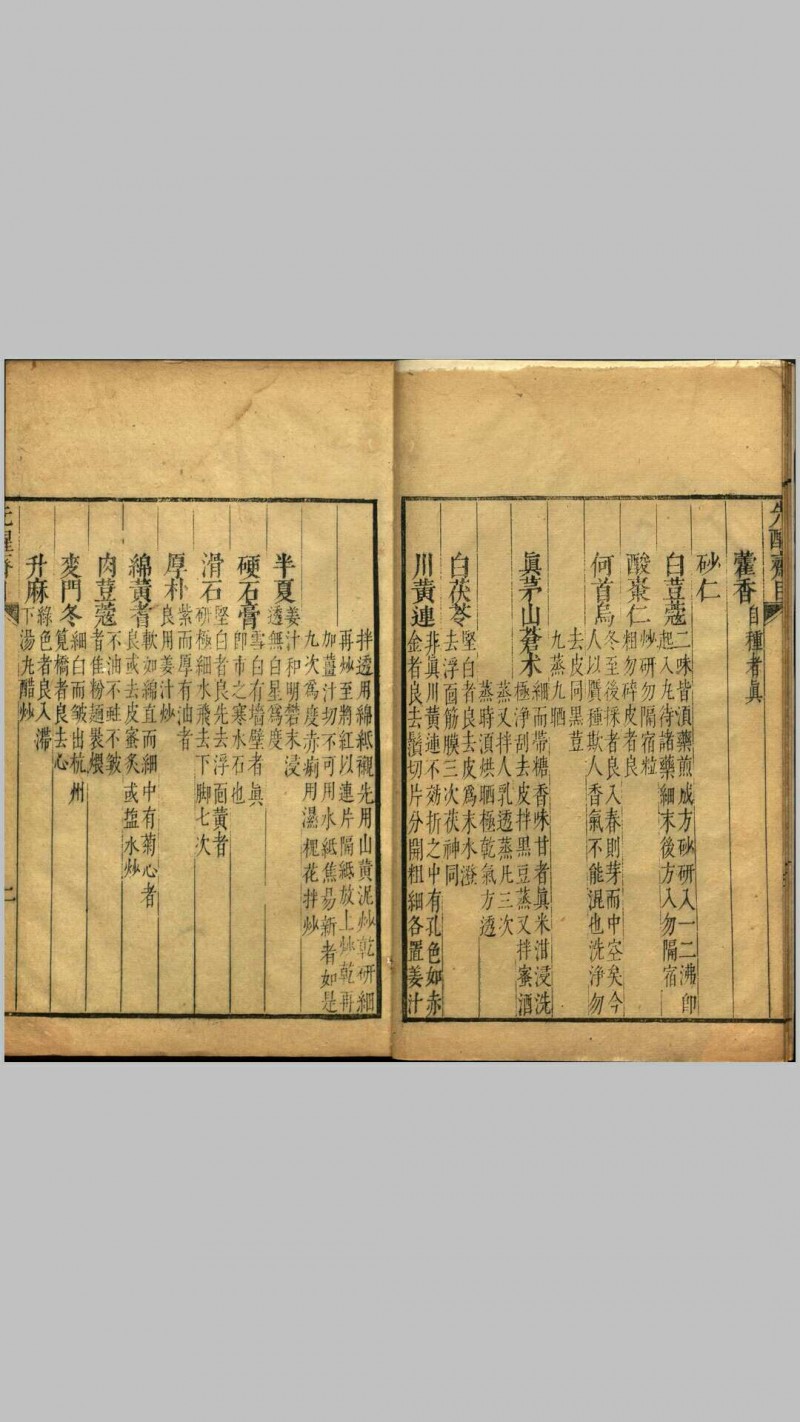 先醒齋目
藿香 自種者眞
砂仁
白荳蔻 二味皆湏藥煎成方砂研入一二沸卽
起入丸待諸藥細末後方入勿隔宿
酸棗仁 炒研勿隔宿粒
粗勿碎皮者良
何首烏 冬至後採者良入春則芽而中空矣今
人以贋種欺人香氣不能混也洗淨勿
去皮同黑荳
九蒸九晒
眞茅山蒼朮 細而帶糖香味甘者眞米泔浸洗
極淨刮去皮拌黑豆蒸又拌蜜酒
蒸又拌人乳透蒸凡三次
蒸時湏烘晒極乾氣方透
白茯苓 堅白者良去皮爲末水澄
去浮面筋膜三次茯神同
川黃連 非眞川黃連不効折之中有孔色如赤
金者良去鬚切片分開粗細各置姜汁
拌透用綿紙襯先用山黃泥炒乾研細
再炒至將紅以連片隔紙放上炒乾再
加薑汁切不可用水紙焦易新者如是
九次爲度赤痢用濕槐花拌炒
半夏 姜汁和明礬末浸
透無白星爲度
硬石膏 雪白有墻壁者眞
卽市之寒水石也
滑石 堅白者良先去浮面黃者
研極細水飛去下脚七次
厚朴 紫而厚有油者
良用姜汁炒
綿黃耆 軟如綿直而細中有菊心者
良或去皮蜜炙或塩水炒
肉荳蔻 不油不蛀不皺
者佳粉麵裹煨
麥門冬 細白而皺出杭州
筧橋者良去心
升麻 綠色者良入滯
下湯丸醋炒
先醒齋